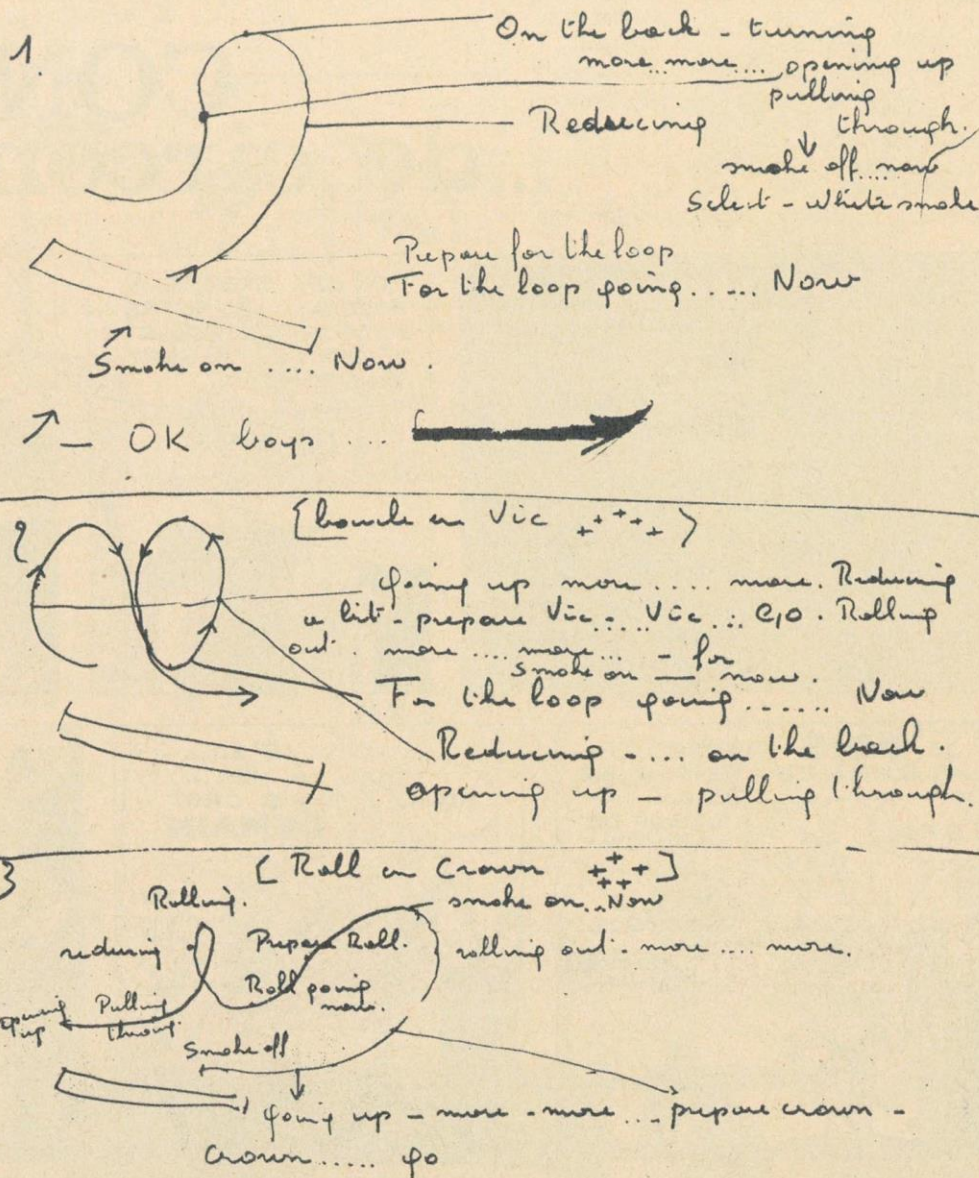 1.
On the back - turning
more... more.... opening up
pulling
through.
Reducing
smoke off.... now
Select - white smoke
Prepare for the loop
For the loop going..... Now
Smoke on .... Now.
- OK boys ...
2
[boucle en Vic +++++]
going up more .... more. Reducing
a bit - prepare Vic..... Vic ... GO. Rolling
out. more .... more... - for
smoke on — now.
For the loop going...... Now
Reducing -.... on the back.
opening up - pulling through.
3
[Roll en Crown +++++]
Rolling.
smoke on...Now
reducing
Prepare Roll.
rolling out - more .... more.
Roll going
now.
opening
up
Pulling
throug
Smoke off
going up - more - more .... prepare crown -
crown ..... go